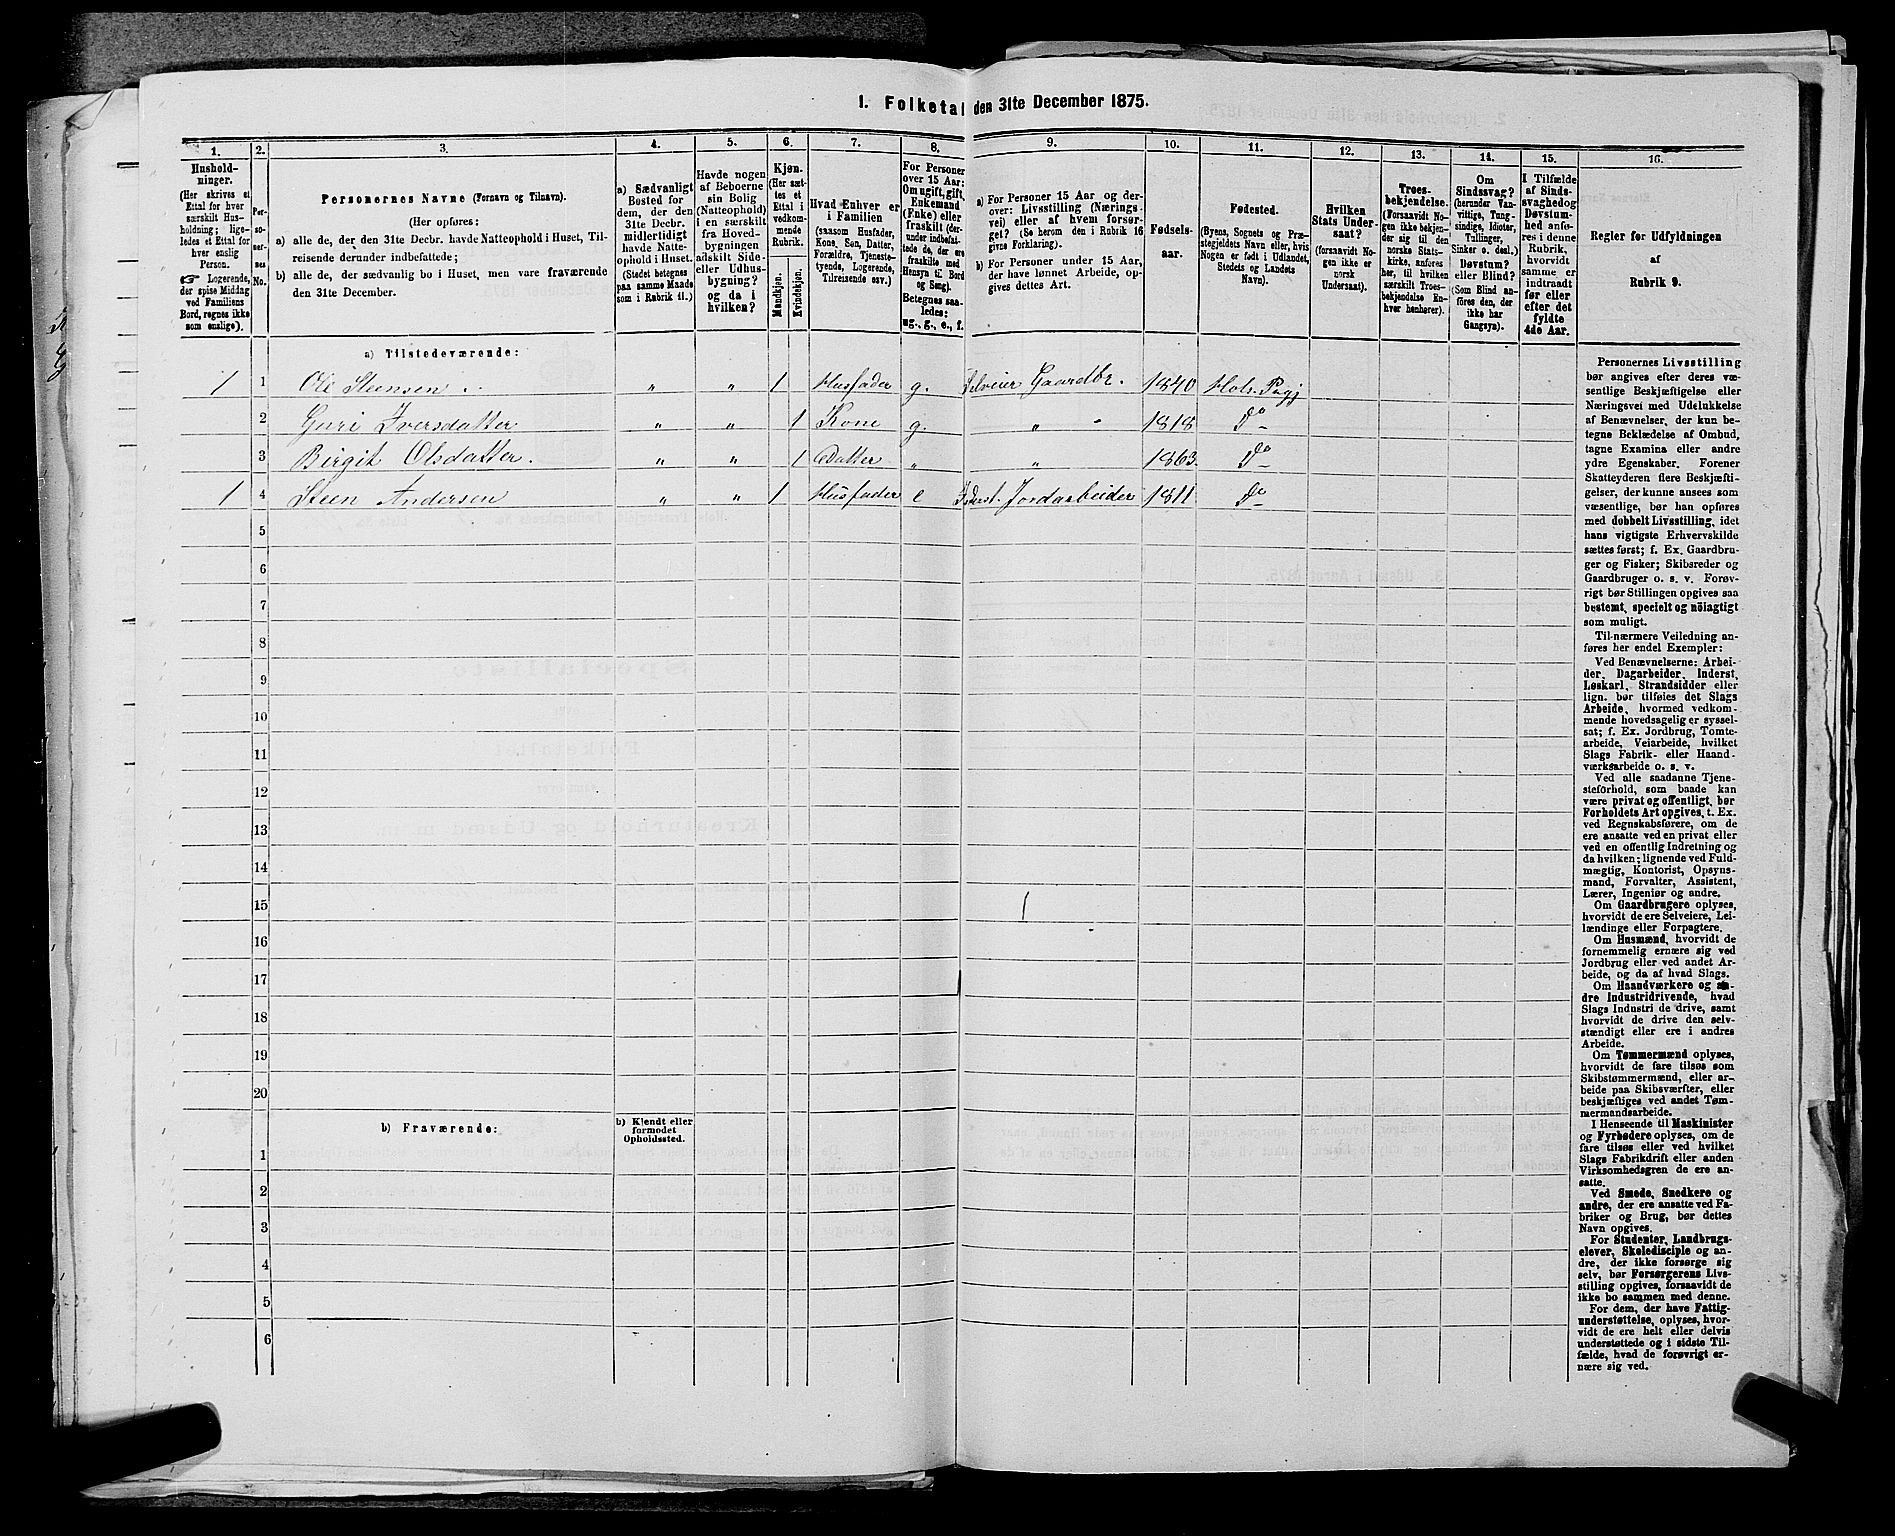 1. Folketal den 31te December 1875.
1.
Hushold-
ninger.
(Her skrives et
Ettal for hver
særskilt Hus-
holdning; lige-
ledes et Ettal for
hver enslig
Person.
☞ Logerende,
der spise Middag
ved Familiens
Bord, regnes ikke
som enslige).
2.
Per-
so-
ner-
nes
No.
3.
Personernes Navne (Fornavn og Tilnavn).
(Her opføres:
a) alle de, der den 31te Decbr. havde Natteophold i Huset, Til-
reisende derunder indbefattede;
b) alle de, der sædvanlig bo i Huset, men vare fraværende
den 31te December.
4.
a) Sædvanligt
Bosted for
dem, der den
31te Decbr.
midlertidigt
havde Natte-
ophold i Huset.
(Stedet betegnes
paa samme Maade
som i Rubrik 11.)
5.
Havde nogen
af Beboerne
sin Bolig
(Natteophold)
i en særskilt
fra Hoved-
bygningen
adskilt Side-
eller Udhus-
bygning?
og da i
hvilken?
6.
Kjøn.
(Her sæt-
tes et
Ettal i
vedkom-
mende
Rubrik.
Mandkjøn.
Kvindekjøn.
7.
Hvad Enhver er
i Familien
(saasom Husfader,
Kone, Søn, Datter,
Forældre, Tjeneste-
tyende, Logerende,
Tilreisende osv.)
8.
For Personer
over 15 Aar:
Om ugift, gift,
Enkemand
(Enke) eller
fraskilt (der-
under indbefat-
tede de, der ere
fraskilte med
Hensyn til Bord
og Seng).
Betegnes saa-
ledes:
ug., g., e., f.
9.
a) For Personer 15 Aar og der-
over: Livsstilling (Nærings-
vei) eller af hvem forsør-
get? (Se herom den i Rubrik 16
givne Forklaring).
b) For Personer under 15 Aar,
der have lønnet Arbeide, op-
gives dettes Art.
10.
Fødsels-
aar.
11.
Fødested.
(Byens, Sognets og Præ-
stegjeldets Navn eller, hvis
Nogen er født i Udlandet,
Stedets og Landets
Navn).
12.
Hvilken
Stats Under-
saat?
(forsaavidt No-
gen ikke er
norsk
Undersaat).
13.
Troes-
bekjendelse.
(Forsaavidt No-
gen ikke bekjen-
der sig til den
norske Stats-
kirke, anføres
her, til hvilken
særskilt Troes-
bekjendelse En-
hver henhører).
14.
Om
Sindssvag?
(herunder Van-
vittige, Tung-
sindige, Idioter,
Tullinger,
Sinker o. desl.)
Døvstum?
eller Blind?
(Som Blind an-
føres den, der
ikke har
Gangsyn).
15.
I Tilfælde
af Sinds-
svaghed og
Døvstum-
hed anfø-
res i denne
Rubrik,
hvorvidt
samme er
indtraadt
før eller
efter det
fyldte
4de Aar.
16.
Regler for Udfyldningen
af
Rubrik 9.
a) Tilstedeværende:
1 1 Ole Steensen „ „ 1 Husfader g. Selveier Gaardbr. 1840 Hols Prgj
2 Guri Iversdatter „ „ 1 Kone g. „ 1818 Do
3 Birgit Olsdatter. „ „ 1 Datter „ „ 1863. Do
1 4 Steen Andersen „ „ 1 Husfader e Inderst. Jordarbeider 1811. Do
5
6
7
8
9
10
11
12
13
14
15
16
17
18
19
20
b) Fraværende:
b) Kjendt eller
formodet
Opholdssted.
1
2
3
4
5
6
Personernes Livsstilling
bør angives efter deres væ-
sentlige Beskjæftigelse eller
Næringsvei med Udelukkelse
af Benævnelser, der kun be-
tegne Beklædelse af Ombud,
tagne Examina eller andre
ydre Egenskaber. Forener
Skatteyderen flere Beskjæfti-
gelser, der kunne ansees som
væsentlige, bør han opføres
med dobbelt Livsstilling, idet
hans vigtigste Erhvervskilde
sættes først; f. Ex. Gaardbru-
ger og Fisker; Skibsreder og
Gaardbruger o. s. v. Forøv-
rigt bør Stillingen opgives saa
bestemt, specielt og nöiagtigt
som muligt.
Til nærmere Veiledning an-
føres her endel Exempler:
Ved Benævnelserne: Arbei-
der, Dagarbeider, Inderst,
Løskarl, Strandsidder eller
lign. bør tilføies det Slags
Arbeide, hvormed vedkom-
mende hovedsagelig er syssel-
sat; f. Ex. Jordbrug, Tomte-
arbeide, Veiarbeide, hvilket
Slags Fabrik- eller Haand-
værksarbeide o. s. v.
Ved alle saadanne Tjene-
steforhold, som baade kan
være privat og offentligt, bør
Forholdets Art opgives, t. Ex.
ved Regnskabsførere, om de
ere ansatte ved en privat eller
ved en offentlig Indretning og
da hvilken; lignende ved Fuld-
mægtig, Kontorist, Opsyns-
mand, Forvalter, Assistent,
Lærer, Ingeniør og andre.
Om Gaardbrugere oplyses,
hvorvidt de ere Selveiere, Lei-
lændinge eller Forpagtere.
Om Husmænd, hvorvidt de
fornemmelig ernære sig ved
Jordbrug eller ved andet Ar-
beide, og da af hvad Slags.
Om Haandværkere og an-
dre Industridrivende, hvad
Slags Industri de drive, samt
hvorvidt de drive den selv-
stændigt eller ere i andres
Arbeide.
Om Tømmermænd oplyses,
hvorvidt de fare tilsøs som
Skibstømmermænd, eller ar-
beide paa Skibsværfter, eller
beskjæftiges ved andet Tøm-
mermandsarbeide.
I Henseende til Maskinister
og Fyrbødere oplyses, om de
fare tilsøs eller ved hvilket
Slags Fabrikdrift eller anden
Virksomhedsgren de ere an-
satte.
Ved Smede, Snedkere og
andre, der ere ansatte ved Fa-
briker og Brug, bør dettes
Navn opgives.
For Studenter, Landbrugs-
elever, Skoledisciple og an-
dre, der ikke forsørge sig
selv, bør Forsørgerens Livs-
stilling opgives, forsaavidt de
ikke bo sammen med denne.
For dem, der have Fattig-
understøttelse, oplyses, hvor-
vidt de ere helt eller delvis
understøttede og i sidste Til-
fælde, hvad de forøvrigt er-
nære sig ved.